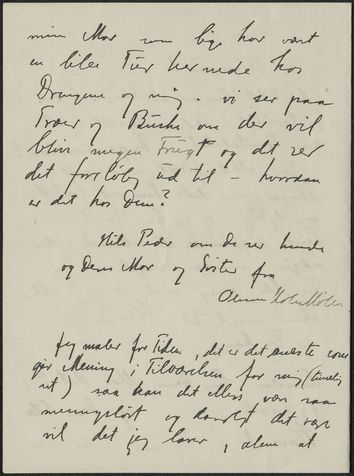 min Mor som lige har været
en lille Tur hernede hos
Drengene og mig. vi ser paa
Træer og Buske om der vil
blive nogen Frugt og det ser
det foreløbig ud til - hvordan
er det hos Dem?
Hils Peder om De ser hende
og Deres Mor og Søster fra
Jeg maler for Tiden, det er det eneste som
gir Mening i Tilværelsen for mig (
) saa kan det ellers være saa
meningsløst og daarligt det være
vil det jeg laver, alene at